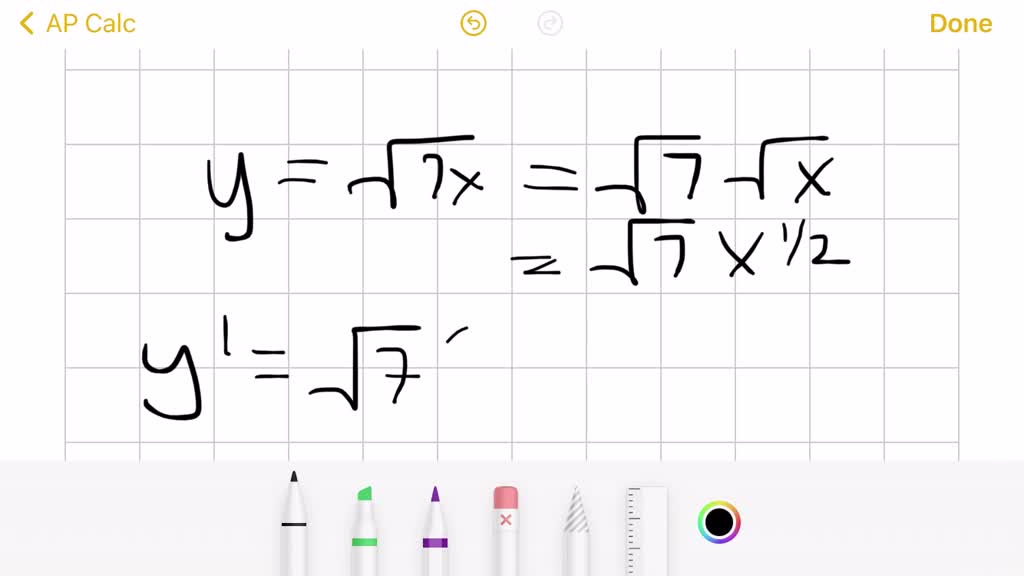 AP Calc
Done
y = √7x = √7 √x
= √7 x 1/2
y' = √7